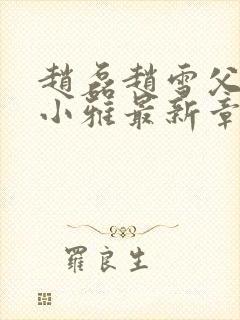 趙磊趙雪父
小雅最新章
羅良生